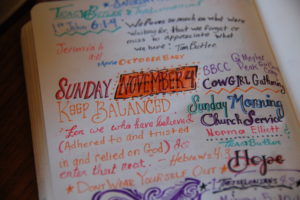 1st John 5:14
"We focus so much on what we're
waiting for, that we forget or
miss to appreciate what
we have". Tim Butler
Jeremiah
SUNDAY NOVEMBER 4
KEEP BALANCED
"For we who have believed
(Adhered to and trusted
in and relied on God) do
enter that rest." - Hebrews 4:3
DON'T WEAR YOURSELF OUT
BBCC
COWGIRL Gathering
Sunday Morning
Church Service
Norma Elliott
Tim Butler
Hope